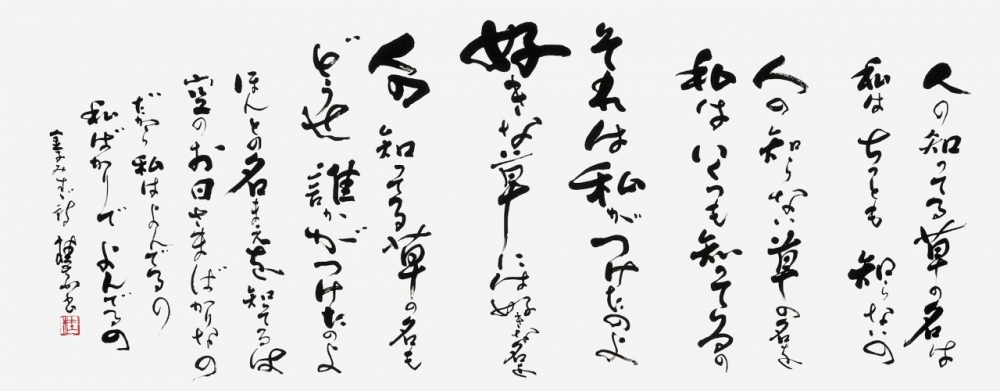 人の知ってる草の名は
私はちっとも知らないの
人の知らない草の名を
私はいくつも知ってるの
それは私がつけたのよ
好きな草には好きな名を
人の知ってる草の名も
どうせ誰かがつけたのよ
ほんとの名まえを知ってるは
空のお日さまばかりなの
だから私はよんでるの
私ばかりでよんでるの
金子みすゞ詩